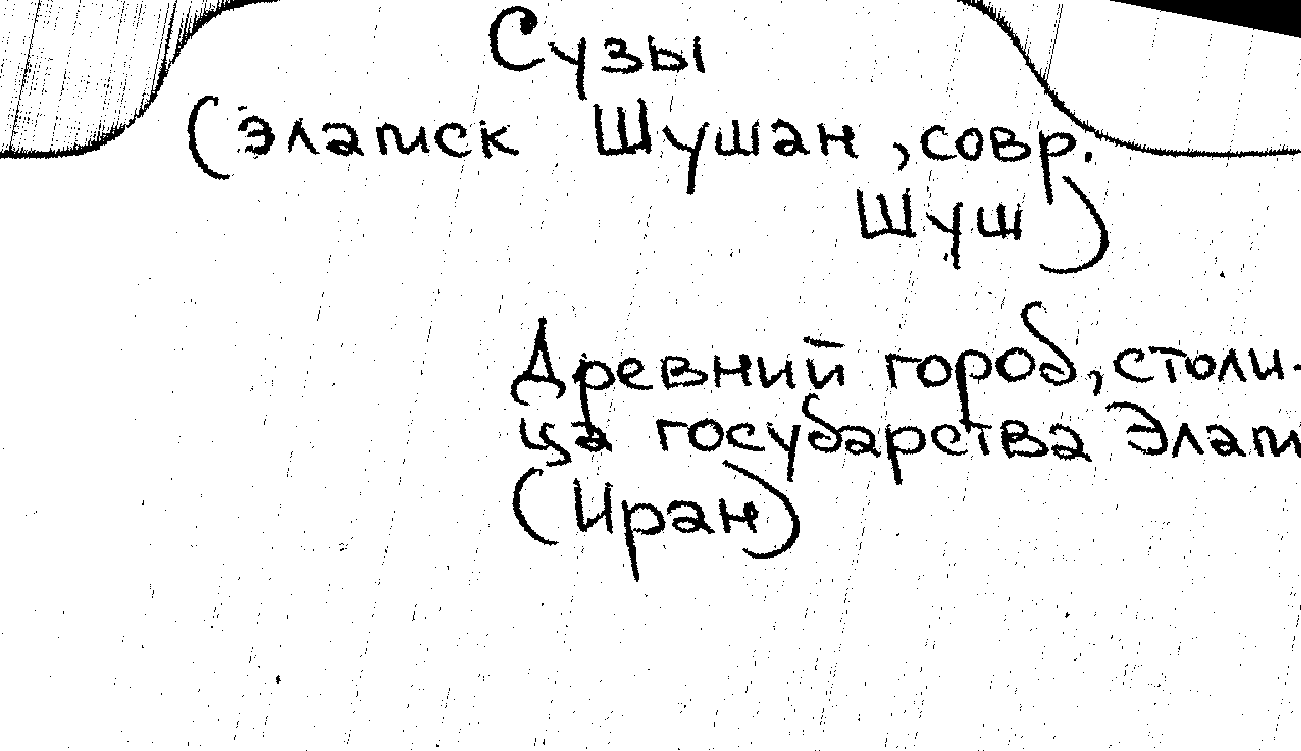 Сузы
(эламск Шушан, совр.
Шуш)
Древний город, столи-
ца государства Элам
(Иран)